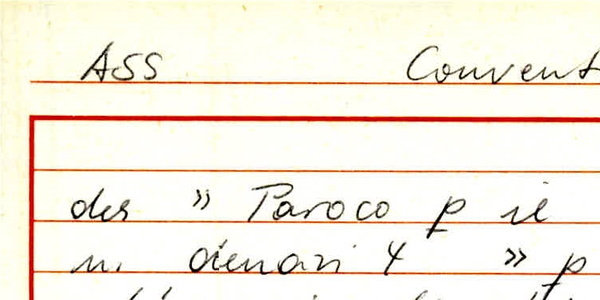 ASS Convent
des » Paroco p il
m. dienari 4 » p